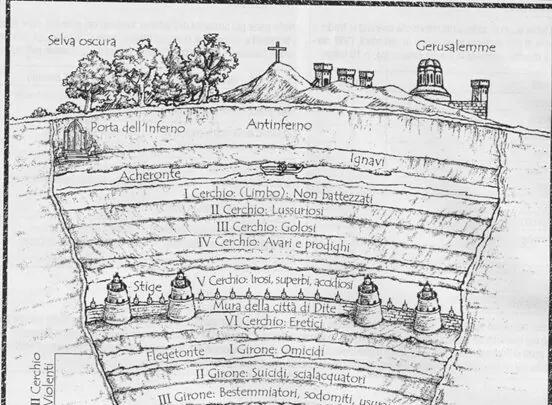 Selva oscura
Gerusalemme
Porta dell'Inferno
Antinferno
Ignavi
Acheronte
I Cerchio: (Limbo): Non battezzati
II Cerchio: Lussuriosi
III Cerchio: Golosi
IV Cerchio: Avari e prodighi
Stige
V Cerchio: Irosi, superbi, accidiosi
Mura della città di Dite
VI Cerchio: Eretici
Flegetonte
I Girone: Omicidi
II Girone: Suicidi, scialacquatori
III Girone: Bestemmiatori, sodomiti,
II Cerchio
Violenti